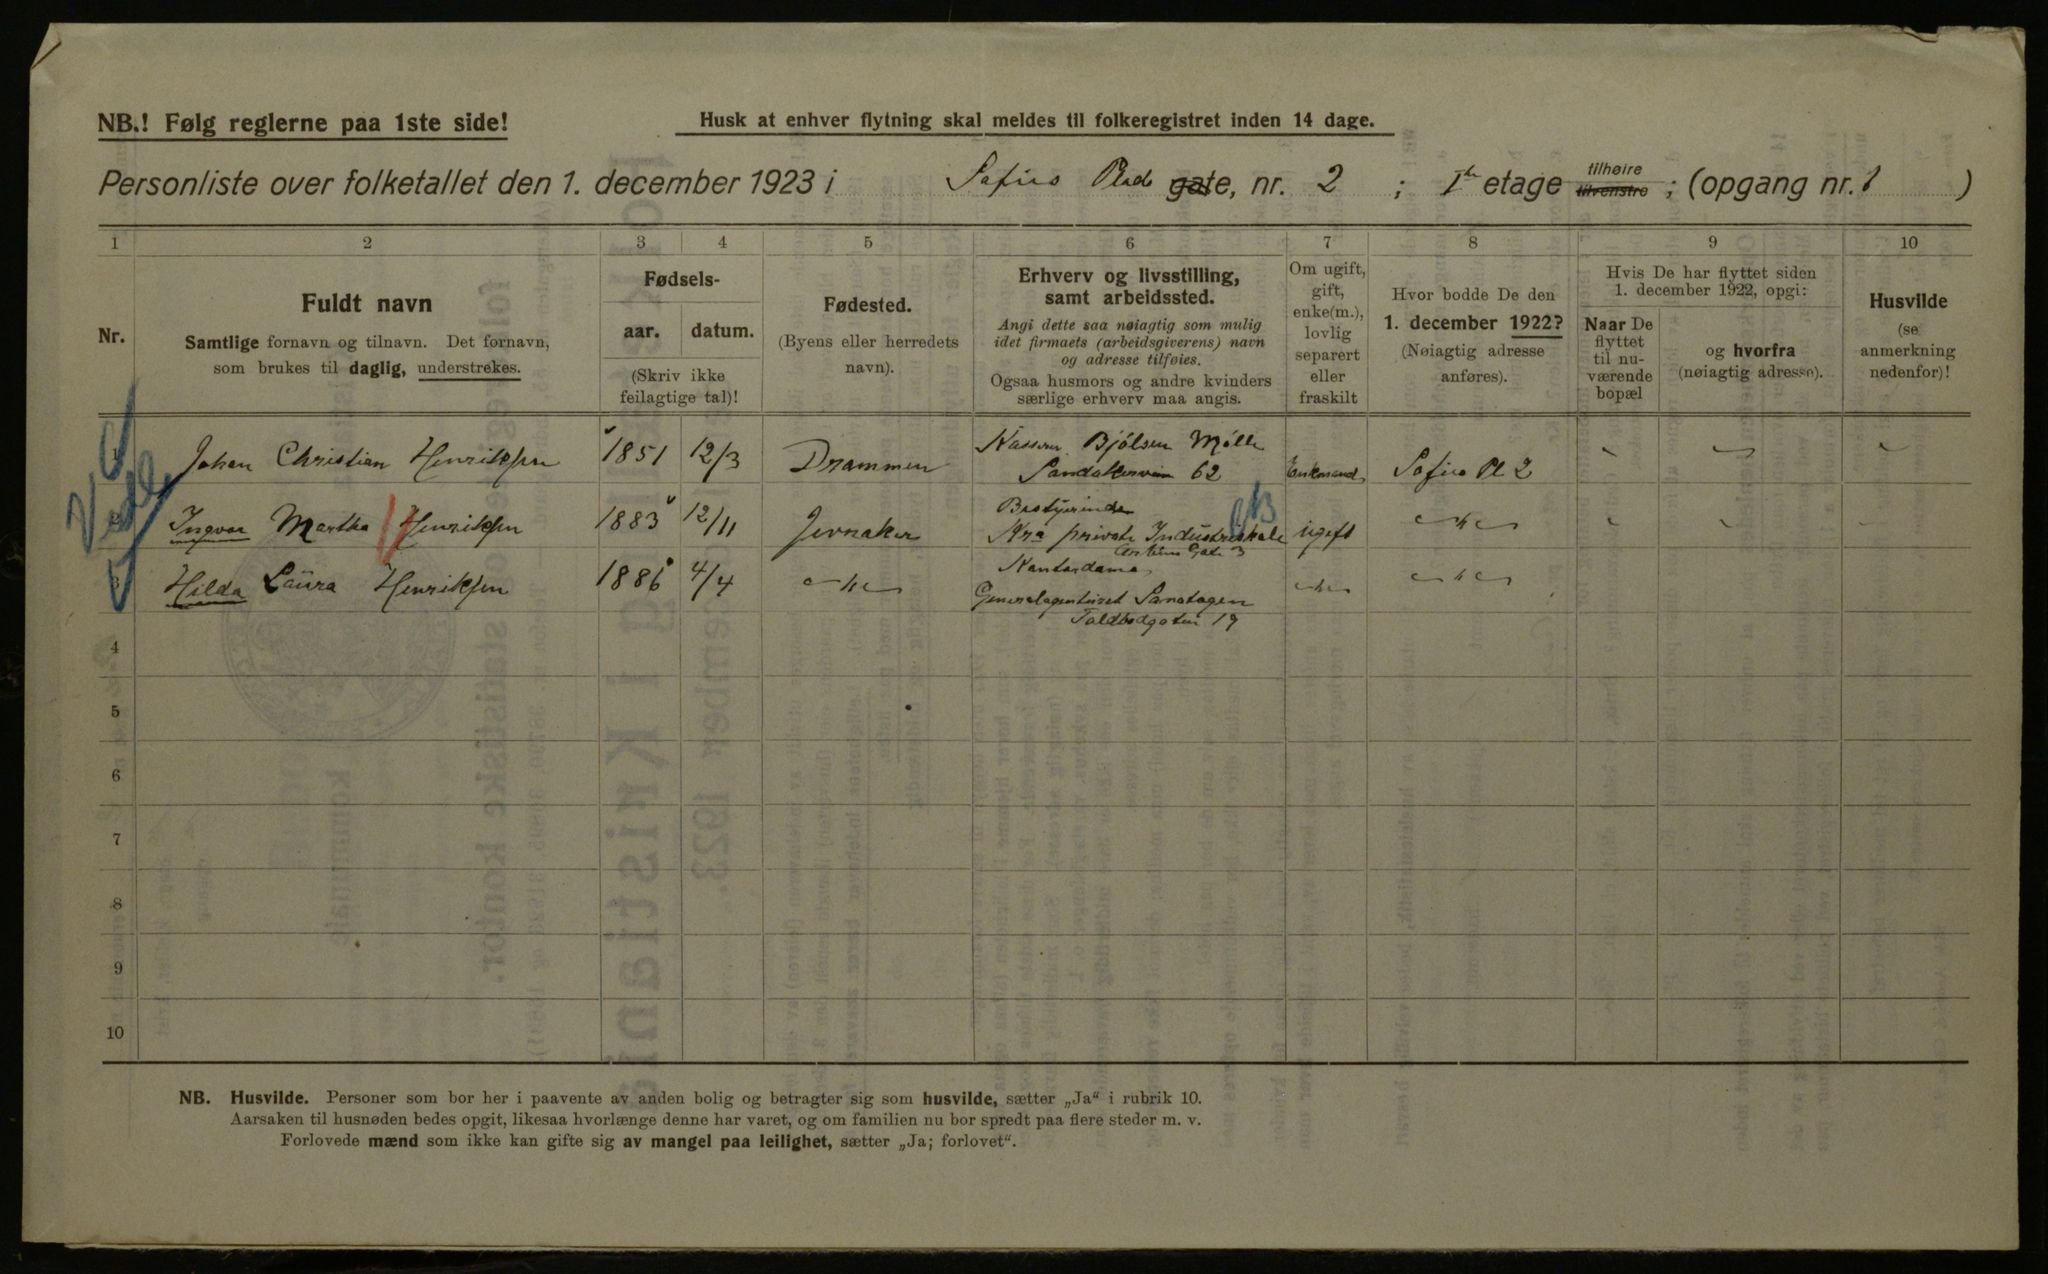 NB.! Følg reglerne paa 1ste side!
Husk at enhver flytning skal meldes til folkeregistret inden 14 dage.
Personliste over folketallet den 1. december 1923 i Sofies Plads gate, nr. 2 ; I etage tilhøire tilvenstre ; (opgang nr. 1 )
1 2 3 4 5 6 7 8 9 10
Nr.
Fuldt navn
Samtlige fornavn og tilnavn. Det fornavn,
som brukes til daglig, understrekes.
Fødsels-
aar. datum.
(Skriv ikke
feilagtige tal)!
Fødested.
(Byens eller herredets
navn).
Erhverv og livsstilling,
samt arbeidssted.
Angi dette saa nøiagtig som mulig
idet firmaets (arbeidsgiverens) navn
og adresse tilføies.
Ogsaa husmors og andre kvinders
særlige erhverv maa angis.
Om ugift,
gift,
enke(m.),
lovlig
separert
eller
fraskilt
Hvor bodde De den
1. december 1922?
(Nøiagtig adresse
anføres).
Hvis De har flyttet siden
1. december 1922, opgi:
Naar De
flyttet
til nu-
værende
bopæl
og hvorfra
(nøiagtig adresse).
Husvilde
(se
anmerkning
nedenfor)!
1 Johan Christian Henriksen 1851 12/3 Drammen Kasserer Bjølsen Mølle
Sandakerveien 62 Enkemand Sofies Pl 2
2 Ingvar Martha Henriksen 1883 12/11 Jevnaker Bestyrerinde
Kra private Industriskole ugift -"-
Gate 3
3 Hilda Laura Henriksen 1886 4/4 -"- Kontordame -"- -"-
Generalagenturet Sanatogen
Toldbodgaten 19
4
5
6
7
8
9
10
NB. Husvilde. Personer som bor her i paavente av anden bolig og betragter sig som husvilde, sætter „Ja“ i rubrik 10.
Aarsaken til husnøden bedes opgit, likesaa hvorlænge denne har varet, og om familien nu bor spredt paa flere steder m. v.
Forlovede mænd som ikke kan gifte sig av mangel paa leilighet, sætter „Ja; forlovet“.